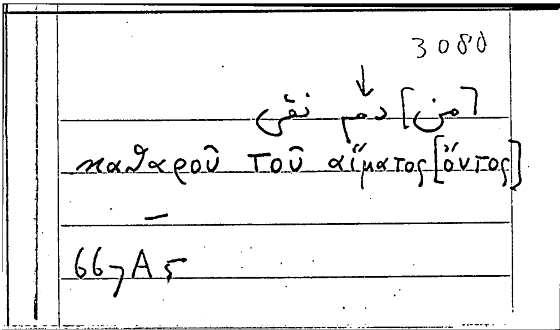 3080
↓
[من] دم نقى
καθαροῦ τοῦ αἵματος [ὄντος]
—
667A5